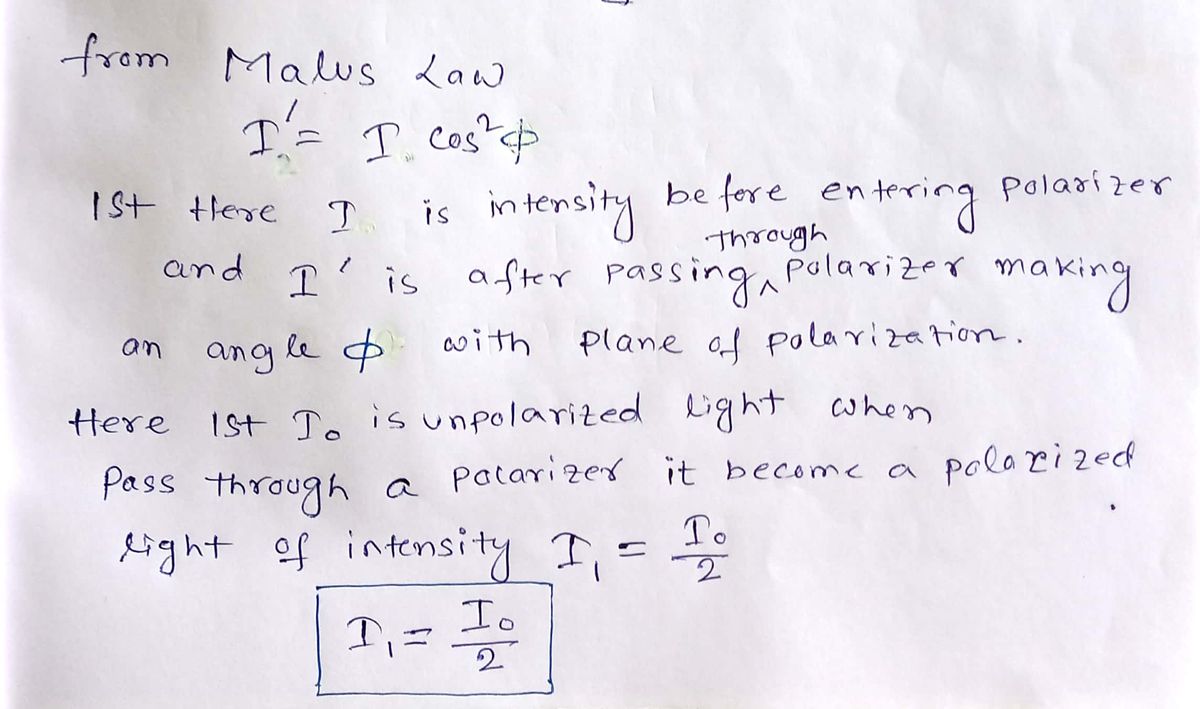 from Malus Law
I' = I cos²φ
1st Here I is intensity before entering polarizer
through
and I' is after passing ^ polarizer making
an angle φ with plane of polarization.
Here 1st I₀ is unpolarized light when
Pass through a polarizer it become a polarized
light of intensity I₁ = I₀/2
I₁ = I₀/2